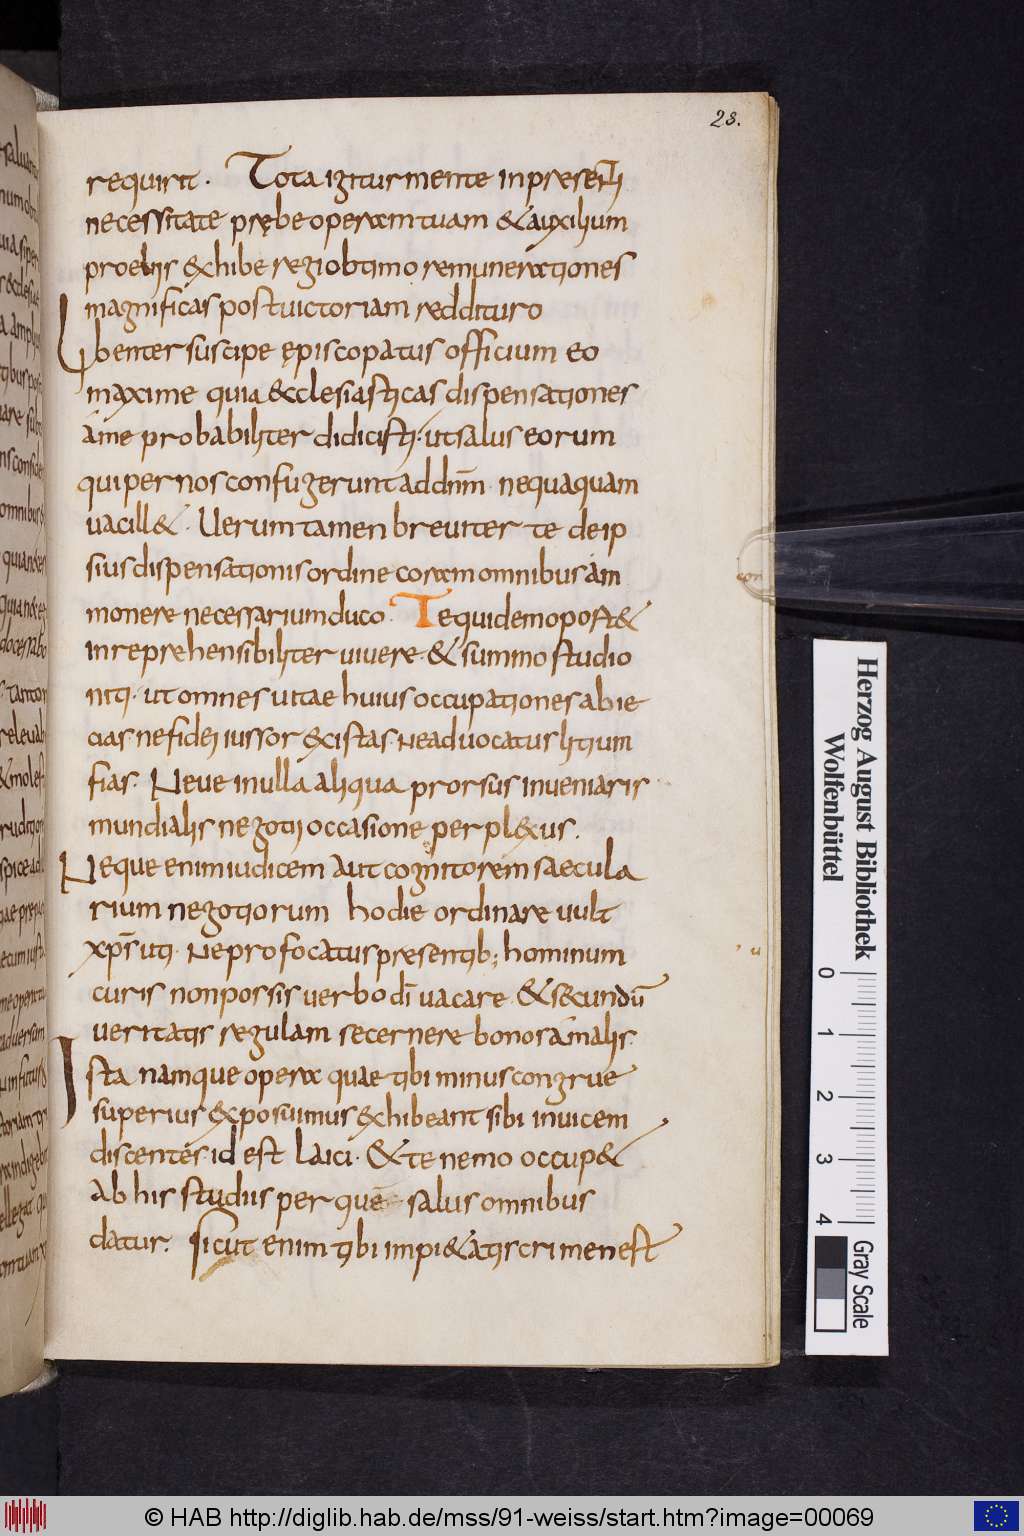 28.
requirit. Tota igitur mente inpresenti
necessitate prębe operam tuam & auxilium
proeliis exhibe regi obtimo remunerationes
magnificas post uictoriam reddituro
Libenter suscipe ępiscopatus officium eo
maxime quia ecclesiasticas dispensationes
ame probabiliter didicisti. ut salus eorum
qui per nos confugerunt addnm nequaquam
uacillet. Uerumtamen breuiter te deip
sius dispensationis ordine coram omnibus am
monere necessarium duco. Te quidem oportet
inreprehensibiliter uiuere & summo studio
niti. ut omnes uitae huius occupationes abie
cias ne fideiiussor existas. Ne aduocatus litium
fias. Neue in ulla aliqua prorsus inueniaris
mundialis negotii occasione perplexus.
Neque enim iudicem aut cognitorem saecula
rium negotiorum hodie ordinare uult
xps uti. Ne profocatus presentib; hominum
curis non possis uerbo di uacare. & secundū
ueritatis regulam secernere bonos amalis.
Ista namque opera quae tibi minus congrue
superius exposuimus exhibeant sibi inuicem
discentes id est laici. & te nemo occupet
ab his studiis per quę salus omnibus
datur. Sicut enim tibi impietatis crimen est
con
u
Herzog August Bibliothek
Wolfenbüttel
0 1 2 3 4
Gray Scale
© HAB http://diglib.hab.de/mss/91-weiss/start.htm?image=00069